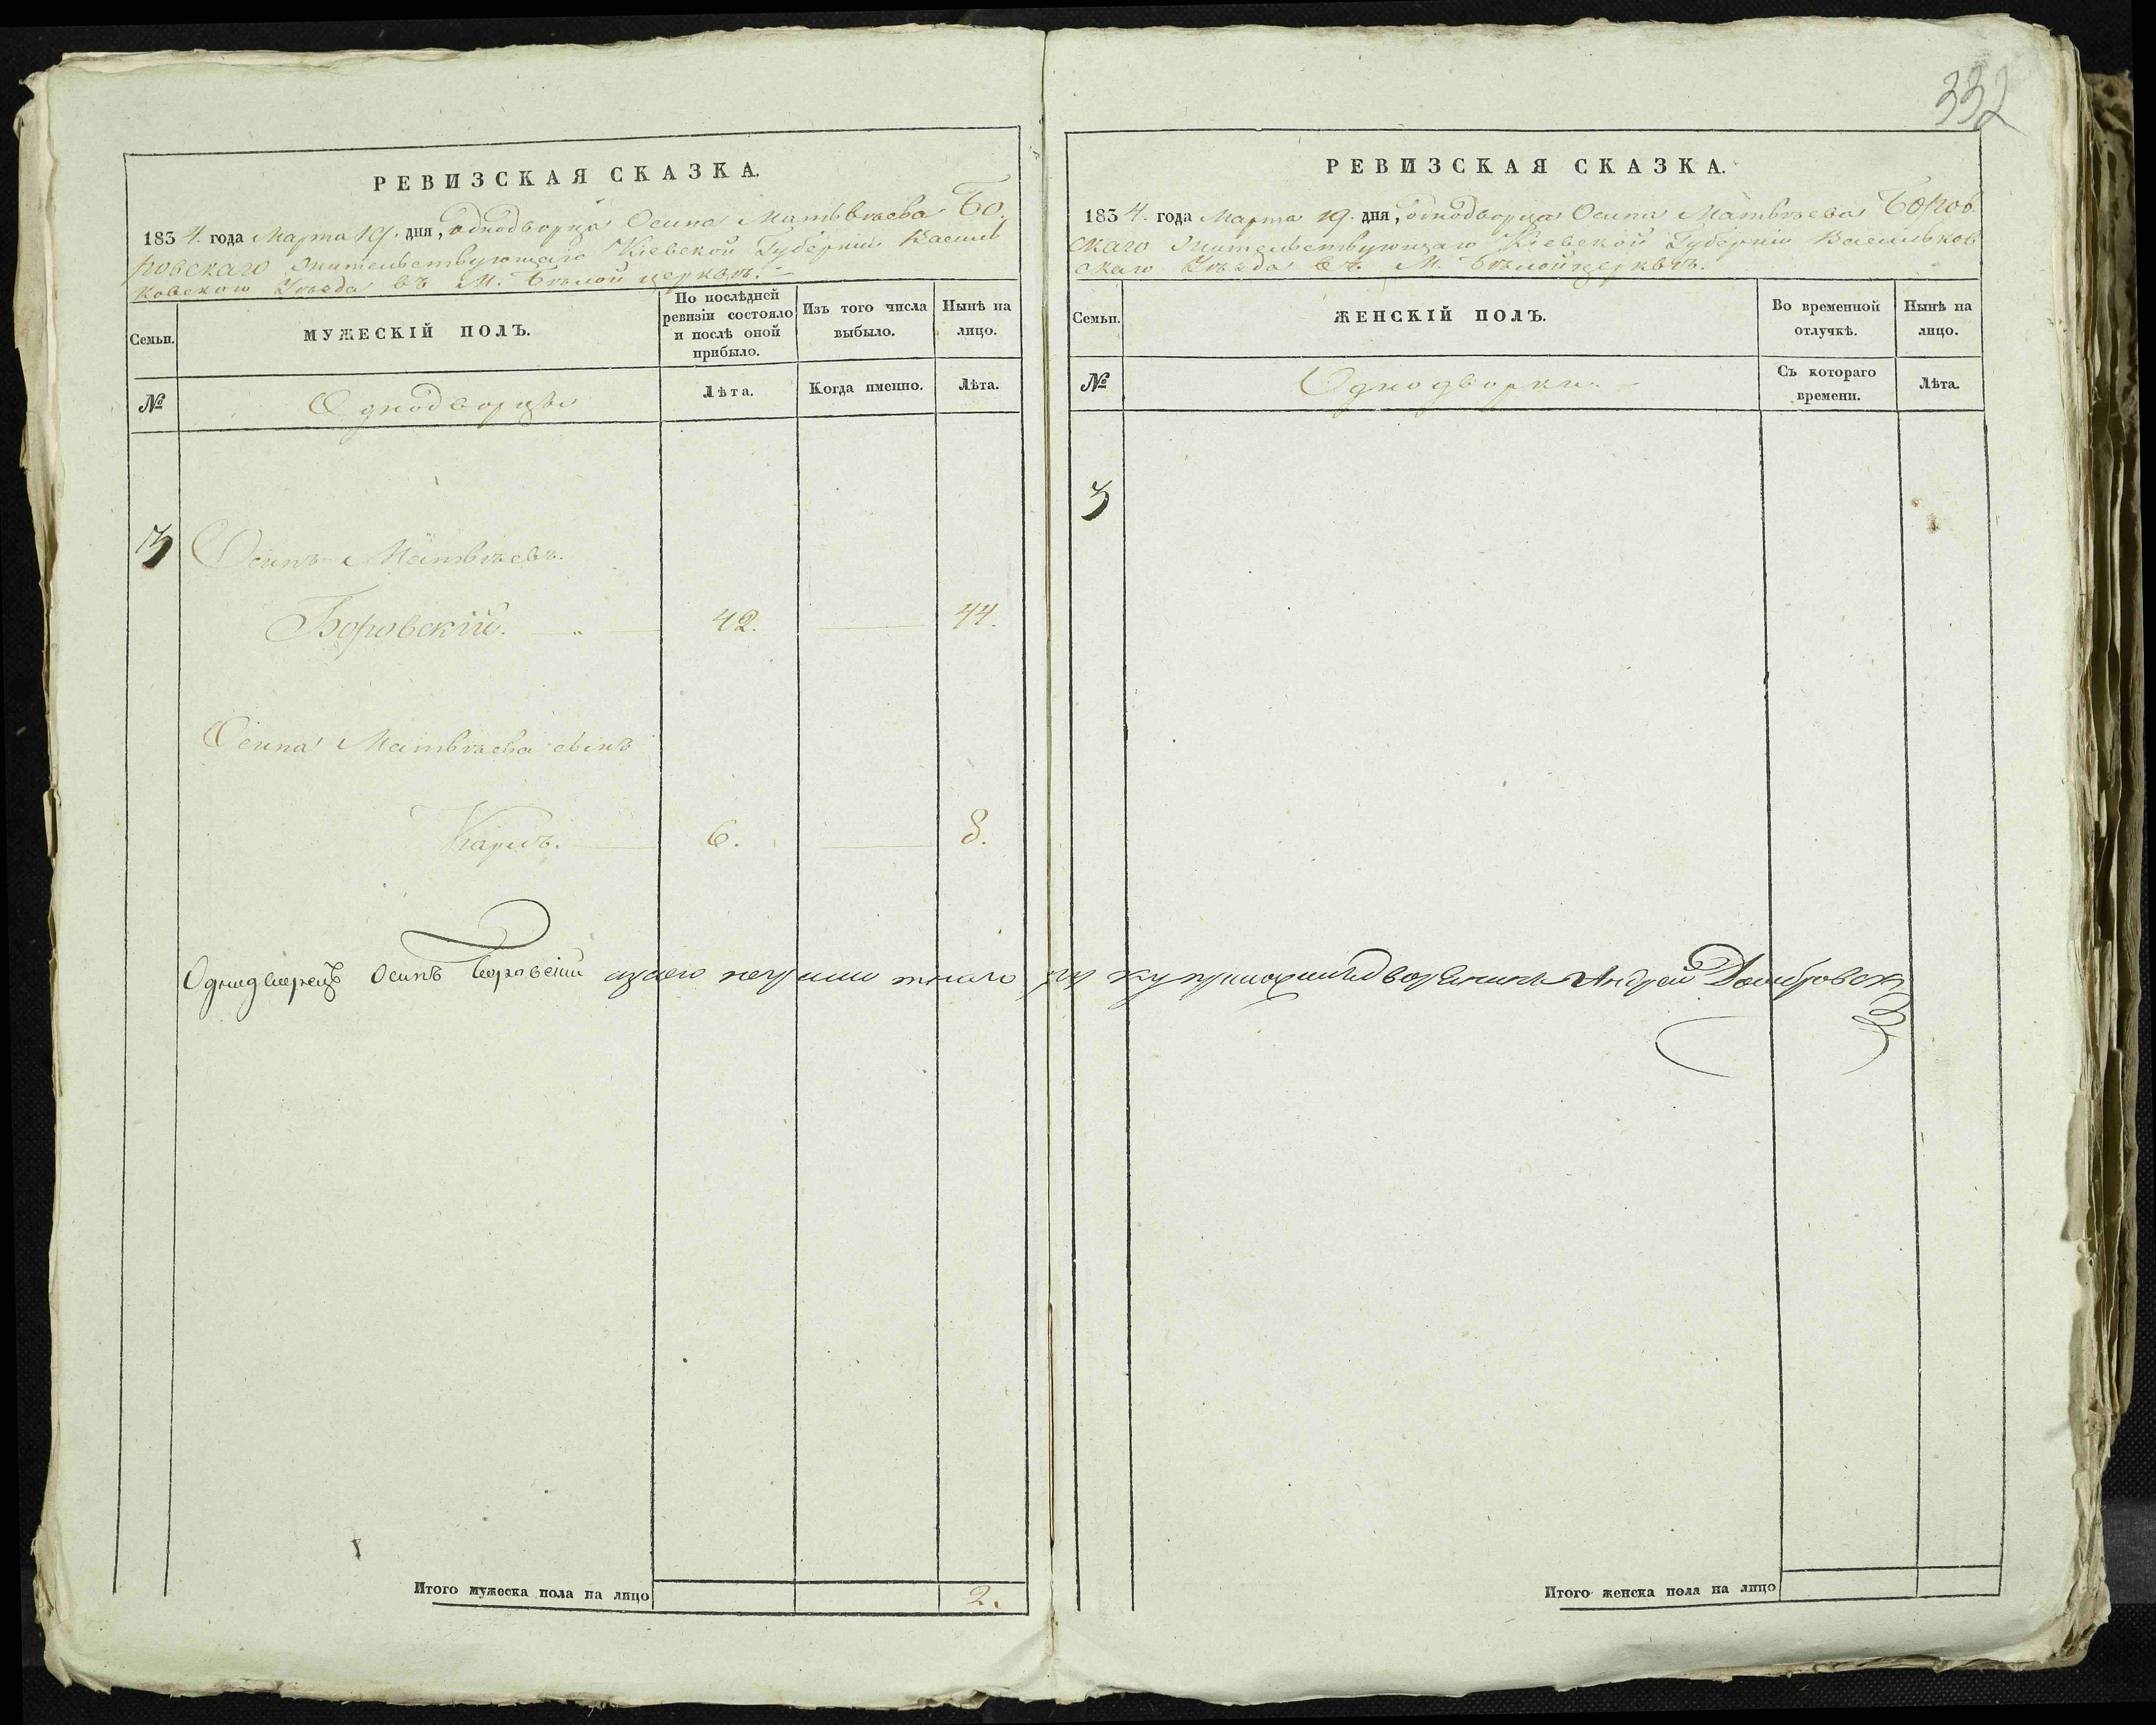 332
РЕВИЗСКАЯ СКАЗКА.
1834. года Марта 19. дня, однодворца Осипа Матвѣева Бо.
ровскаго жительствующаго Кіевской Губерніи Василь
ковскаго Уѣзда въ М. Бѣлой церквѣ.
Семьи.
МУЖЕСКІЙ ПОЛЪ.
По послѣдней ревизіи состояло и послѣ оной прибыло.
Изъ того числа выбыло.
Нынѣ на лицо.
№
Однодворцы
Лѣта.
Когда именно.
Лѣта.
3
Осипъ Матвѣевъ.
Боровскій. 42. 44.
Осипа Матвѣева сынъ
Карлъ. 6. 8.
Однодворецъ Осипъ Боровскій
Итого мужеска пола на лицо 2.
РЕВИЗСКАЯ СКАЗКА.
1834. года Марта 19. дня, однодворца Осипа Матвѣева Боров.
скаго жительствующаго Кіевской Губерніи Васильков
скаго Уѣзда въ М. Бѣлой церквѣ.
Семьи.
ЖЕНСКІЙ ПОЛЪ.
Во временной отлучкѣ.
Нынѣ на лицо.
№
Однодворки.
Съ котораго времени.
Лѣта.
3
дворянинъ Андрей Домбровск
Итого женска пола на лицо